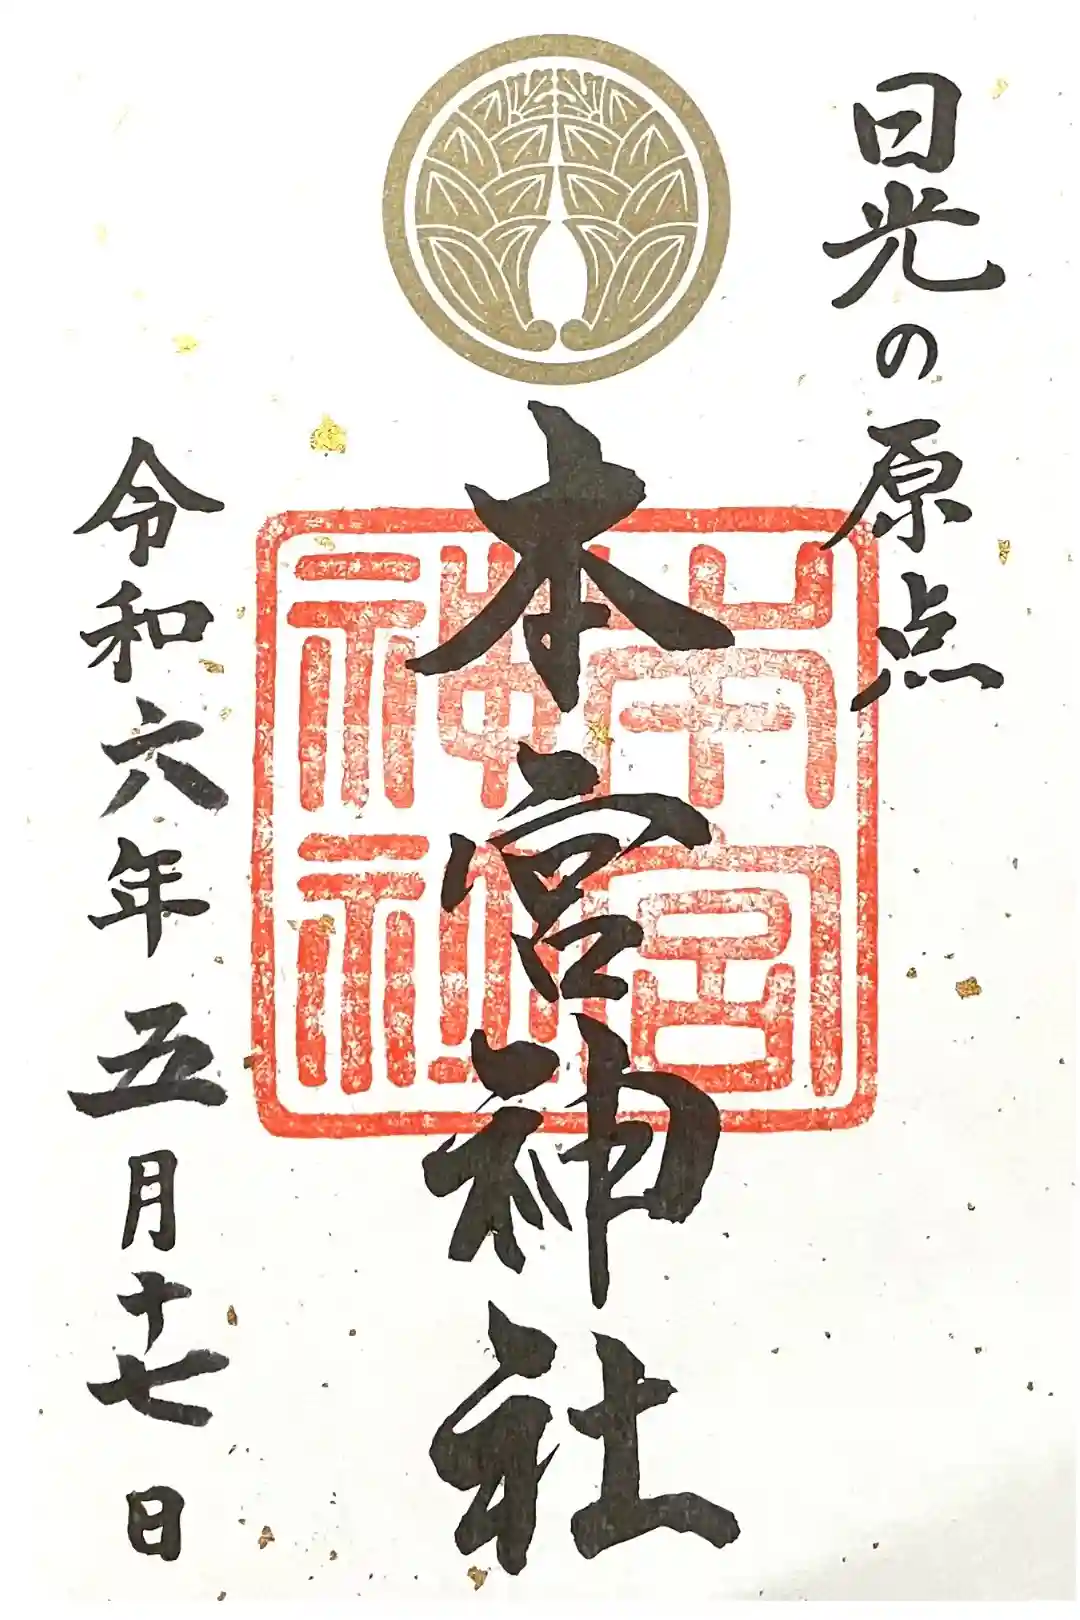 日光の原点
本宮神社
令和六年五月十七日